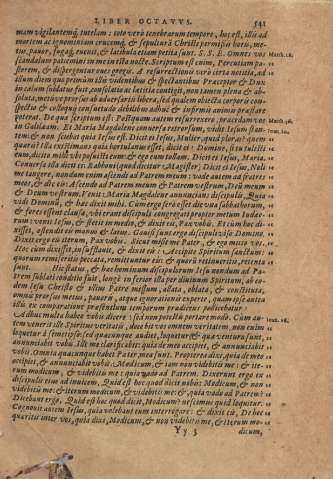 LIBER OCTAVVS. 541
mam vigilantemq́; tutelam: toto verò tenebrarum tempore, hoc est, illis ad
mortem ac ignominiosam crucemq́; & sepulturā Christi permissis horis, me-
tus, pauor, fugaq́; euenit, & latibula etiam petita sunt. S. S. E. Omnes vos Matth. 26.
scandalum patiemini in me in ista nocte. Scriptum est enim, Percutiam pa-
storem, & dispergentur oues gregis. A resurrectionis verò certa notitia, ad
illum diem quo præmium illis videntibus & spectantibus Præceptor & Dux
in cælum sublatus fuit, consolatio ac lætitia contigit, non tamen plena & ab-
soluta, metiue prorsus ab aduersariis libera, sed qualem electa corporis con-
spectio & colloquij consuetudo debilibus adhuc & infirmis animis præstare
poterat. De qua scriptum est: Postquam autem resurrexero, præcedam vos Matth. 26.
in Galilæam. Et Maria Magdalene conuersa retrorsum, vidit Iesum stan- Ioan. 20.
tem: & non sciebat quia Iesus est. Dicit ei Iesus, Mulier, quid ploras? quem
quæris? Illa existimans quia hortulanus esset, dicit ei: Domine, si tu sustulisti
eum, dicito mihi vbi posuisti eum: & ego eum tollam. Dicit ei Iesus, Maria.
Conuersa illa dicit ei: Rabboni; quod dicitur Magister; Dicit ei Iesus, Noli
me tangere, nondum enim ascendi ad Patrem meum: vade autem ad fratres
meos, & dic eis: Ascendo ad Patrem meum & Patrem vestrum, Deū meum
& Deum vestrum. Venit Maria Magdalene annuncians discipulis, Quia
vidi Dominū, & hæc dixit mihi. Cùm ergo serò esset die vna sabbatorum,
& fores essent clausæ, vbi erant discipuli congregati propter metum Iudæo-
rum: venit Iesus, & stetit in medio, & dixit eis, Pax vobis. Et cùm hæc di-
xisset, ostendit eis manus & latus. Gauisi sunt ergo discipuli viso Domino.
Dixit ergo eis iterum, Pax vobis. Sicut misit me Pater, & ego mitto vos.
Hoc cùm dixisset, insufflauit, & dixit eis: Accipite Spiritum sanctum:
quorum remiseritis peccata, remittuntur eis: & quorū retinueritis, retenta
sunt. His statim, & hac hominum discipulorum Iesu nondum ad Pa-
trem sublati conditio fuit, longè inferior illa per diuinum Spiritum, ab eo-
dem Iesu Christo & illius Patre missum, allata, oblata, & constituta,
omnis prorsus metus, pauoris, atque ignorationis experte, quam ipse antea
illis ex comparatione præsentium temporum prædicens pollicebatur:
Adhuc multa habeo vobis dicere: sed non potestis portare modò. Cùm au- Ioan. 16.
tem venerit ille Spiritus veritatis, docebit vos omnem veritatem. non enim
loquetur à semetipso: sed quæcunque audiet, loquetur: & quæ ventura sunt,
annunciabit vobis. Ille me clarificabit: quia de meo accipiet, & annunciabit
vobis. Omnia quæcunque habet Pater, mea sunt. Propterea dixi, quia de meo
accipiet, & annunciabit vobis. Modicum, & iam non videbitis me: & ite-
rum modicum, & videbitis me: quia vado ad Patrem. Dixerunt ergo ex
discipulis eius ad inuicem, Quid est hoc quod dicit nobis: Modicum, & non
videbitis me: & iterum modicum, & videbitis me: &, quia vado ad Patrem?
Dicebant ergo, Quid est hoc quod dicit, Modicum? nescimus quid loquitur.
Cognouit autem Iesus, quia volebant eum interrogare: & dixit eis, De hoc
quæritis inter vos, quia dixi, Modicum, & non videbitis me, & iterum mo-
Yy 3 dicum,